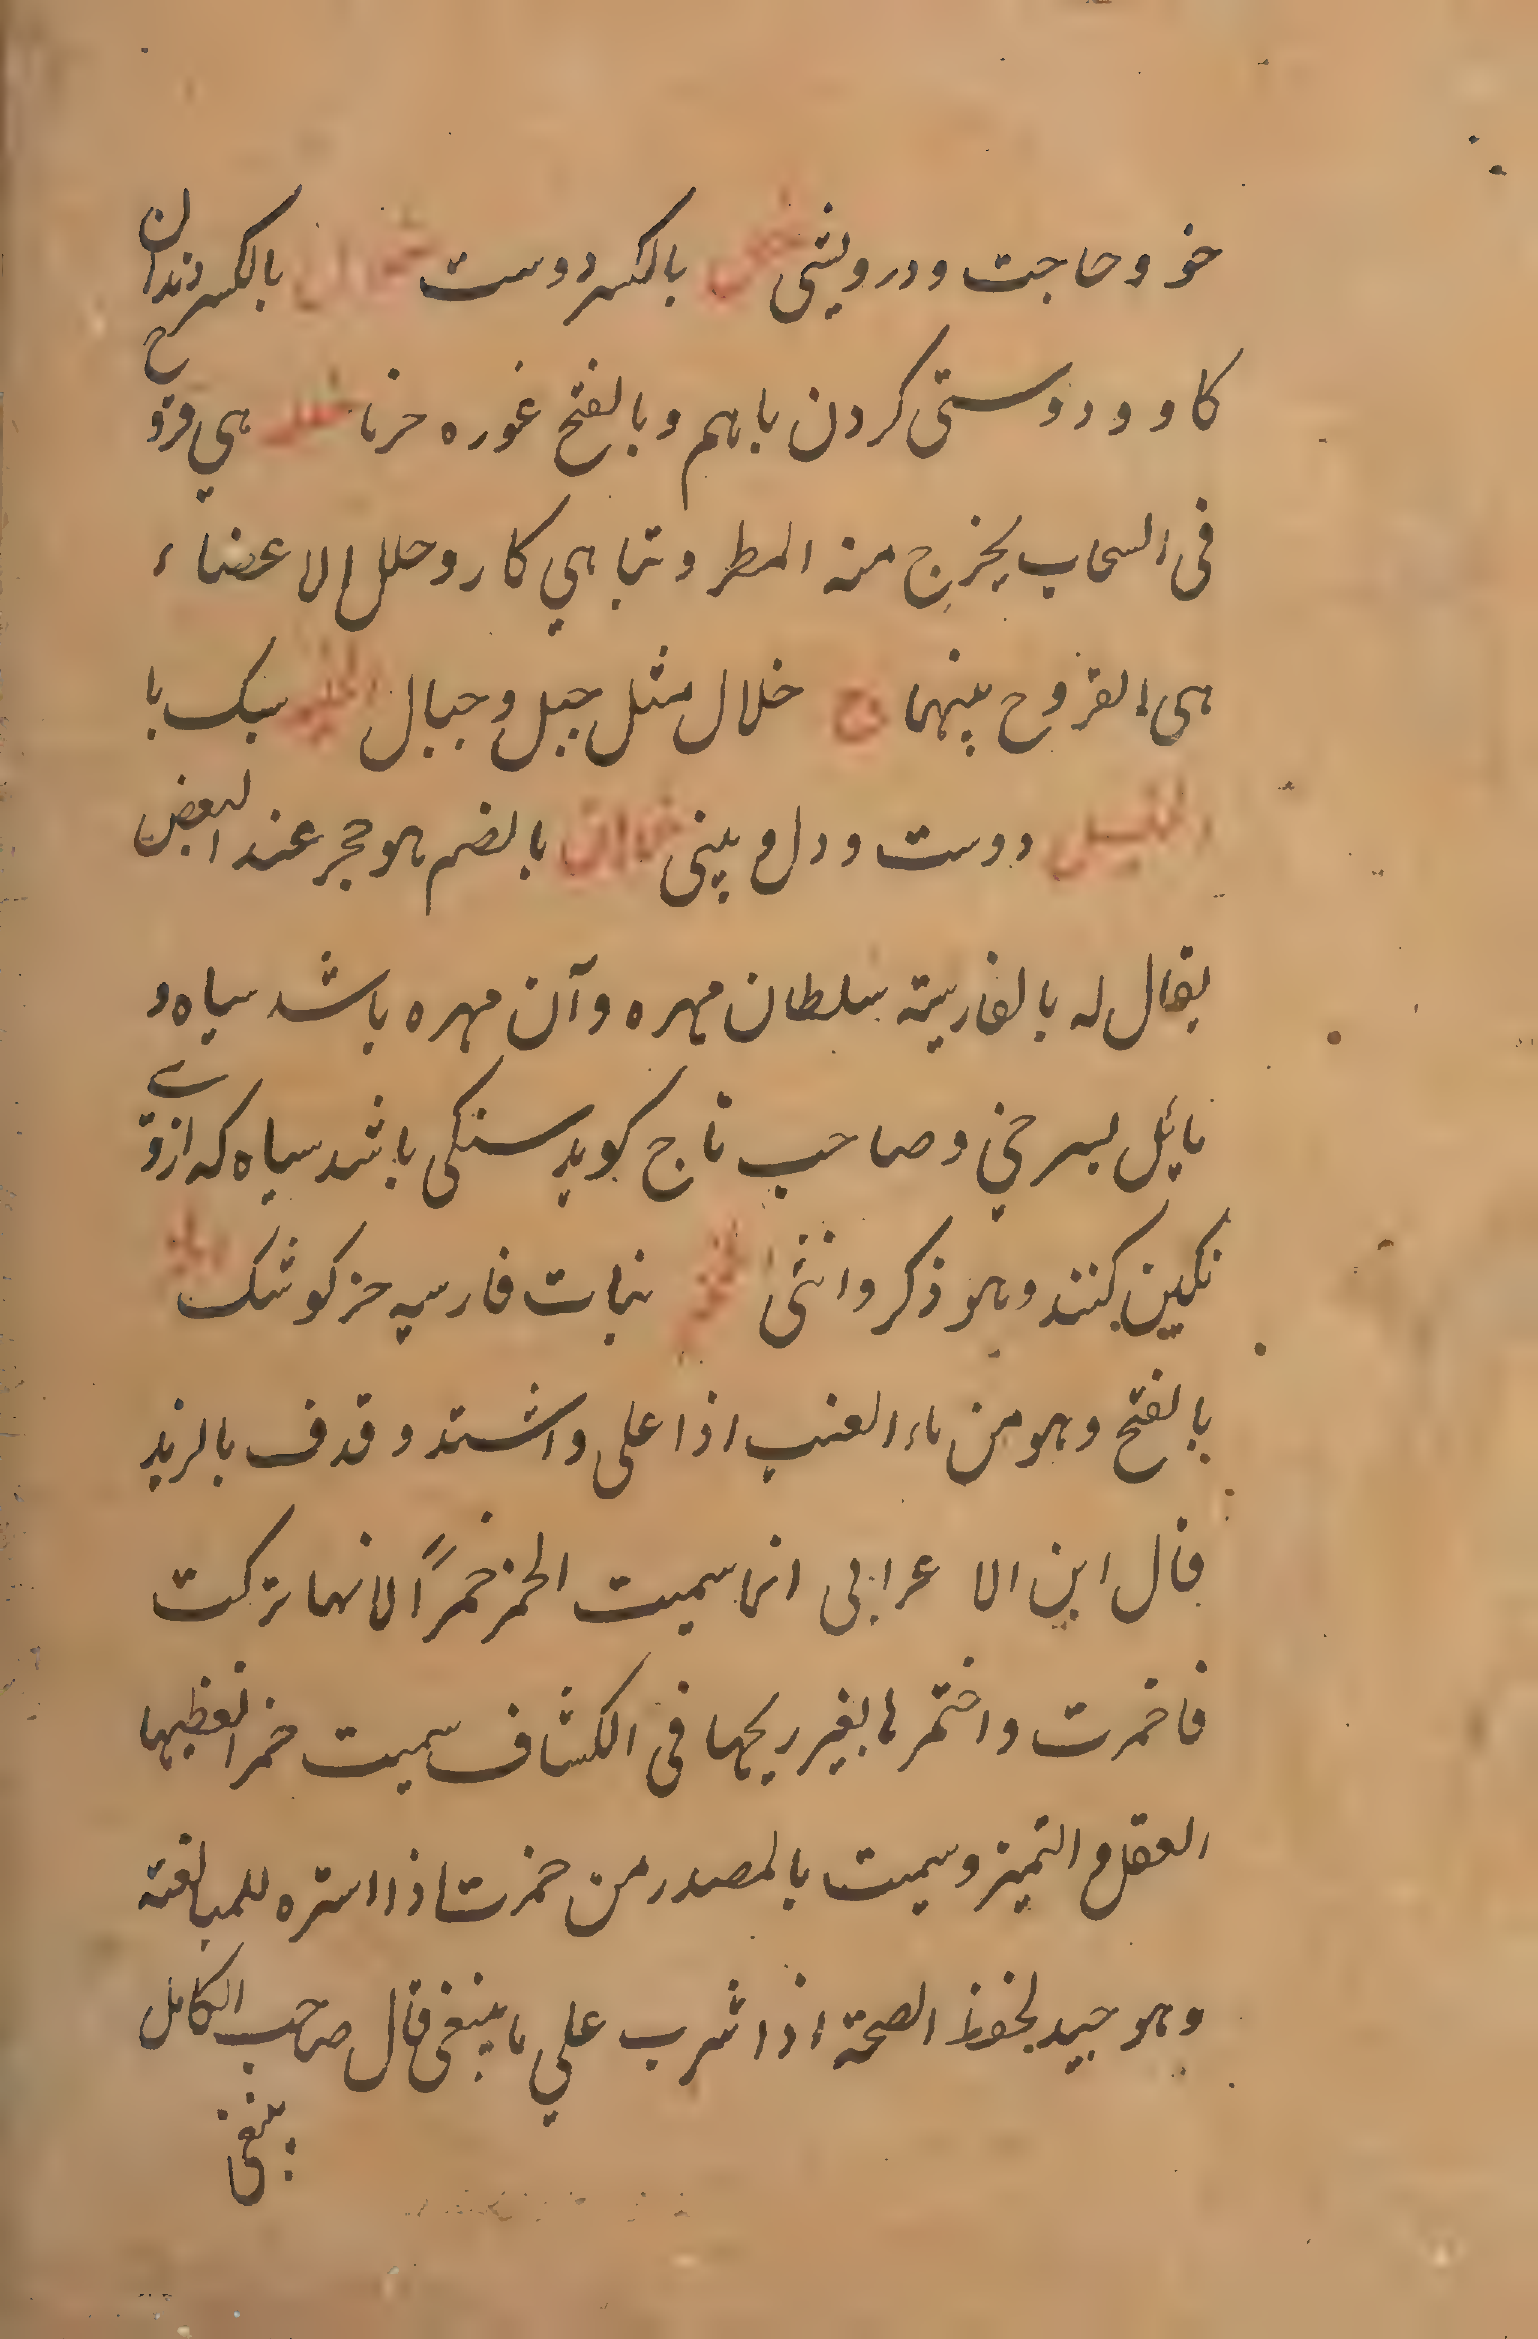 خو و حاجت و درویشی خل بالکسر دوست خلال بالکسر دندان
کاو و دوستی کردن باهم و بالفتح غوره خرما خلل هی فروج
فی السحاب یخرج منه المطر و تباهي کار و خلل الاعضاء
هی القروح بینهما ج خلال مثل جبل و جبال سبک با
الخلیل دوست و دل و بینی بالضم هو حجر عند البعض
یقال له بالفارسیة سلطان مهره و آن مهره باشد سیاه و
مایل بسرخي و صاحب تاج کوید سنکی باشد سیاه که ازوے
نکین کنند و هو ذکر و انثی نبات فارسیه خرکوشک
بالفتح و هو من ماء العنب اذا علی و اشتد و قدف بالزبد
قال ابن الاعرابی انما سمیت الخمر خمراً لانها ترکت
فاخمرت و اختمرها بغیر ریحها فی الکشاف سمیت خمر التغطیها
العقل و التمیز و سمیت بالمصدر من خمرت اذا استره للمبالغة
و هو جید لحفظ الصحة اذا شرب علي ما ینبغی قال صاحب الکامل
ینبغی